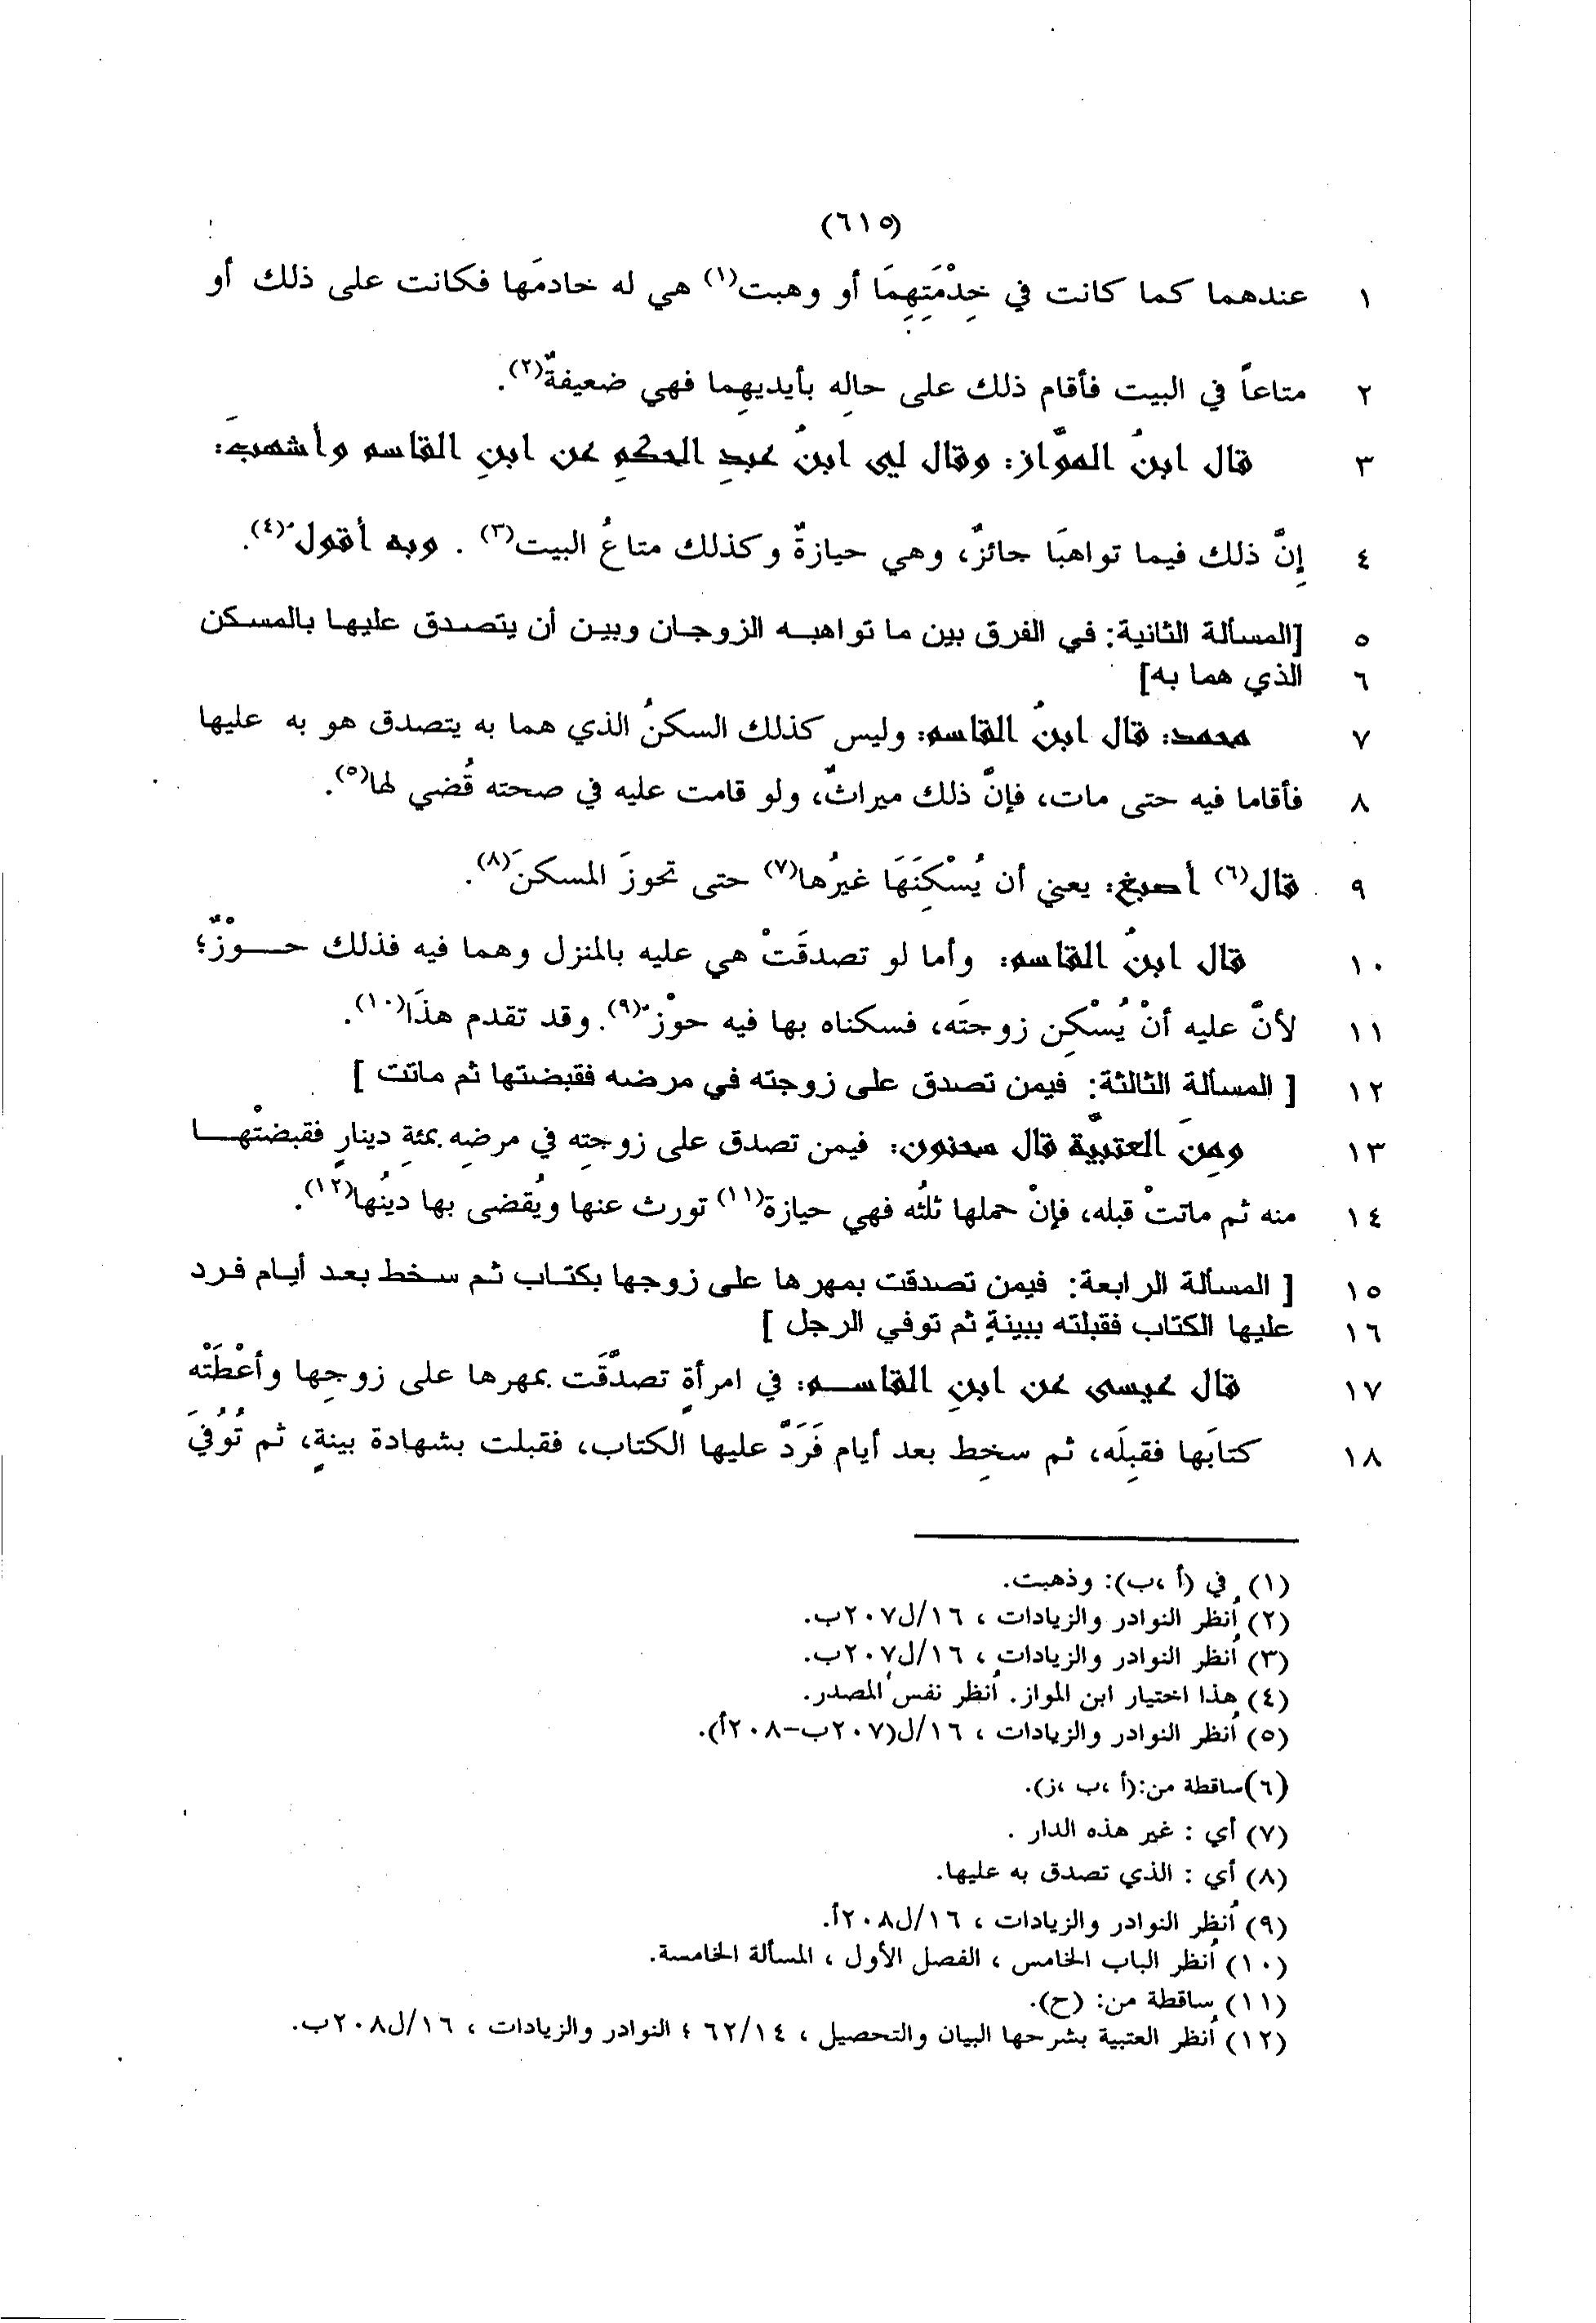 (٦١٥)
١ عندهما كما كانت في خِدْمَتِهِمَا أو وهبت(١) هي له خادمَها فكانت على ذلك أو
٢ متاعاً في البيت فأقام ذلك على حالِه بأيديهِما فهي ضعيفةٌ(٢).
٣ قال ابنُ الموَّاز: وقال لي ابنُ عبدِ الحكمِ عن ابنِ القاسم وأشهبَ:
٤ إنَّ ذلك فيما تواهبَا جائزٌ، وهي حيازةٌ وكذلك متاعُ البيت(٣). وبه أقول(٤).
٥ [المسألة الثانية: في الفرق بين ما تواهبه الزوجان وبين أن يتصدق عليها بالمسكن
٦ الذي هما به]
٧ محمد: قال ابنُ القاسم: وليس كذلك السكنُ الذي هما به يتصدق هو به عليها
٨ فأقاما فيه حتى مات، فإنَّ ذلك ميراثٌ، ولو قامت عليه في صحته قُضي لها(٥).
٩ قال(٦) أصبغ: يعني أن يُسْكِنَهَا غيرُها(٧) حتى تحوزَ المسكنَ(٨).
١٠ قال ابنُ القاسم: وأما لو تصدقَتْ هي عليه بالمنزل وهما فيه فذلك حـــوْزٌ؛
١١ لأنّ عليه أنْ يُسْكِن زوجتَه، فسكناه بها فيه حوْز(٩). وقد تقدم هذَا(١٠).
١٢ [ المسألة الثالثة: فيمن تصدق على زوجته في مرضه فقبضتها ثم ماتت ]
١٣ ومِنَ العتبيَّة قال سحنون: فيمن تصدق على زوجتِه في مرضِه بمئةِ دينارٍ فقبضتْهـــا
١٤ منه ثم ماتتْ قبله، فإنْ حملها ثلثُه فهي حيازة(١١) تورث عنها ويُقضى بها دينُها(١٢).
١٥ [ المسألة الرابعة: فيمن تصدقت بمهرها على زوجها بكتاب ثم سخط بعد أيام فرد
١٦ عليها الكتاب فقبلته ببينةٍ ثم توفي الرجل ]
١٧ قال عيسى عن ابنِ القاســم: في امرأةٍ تصدَّقَت بمهرها على زوجِها وأعْطَتْه
١٨ كتابَها فقبِلَه، ثم سخِط بعد أيام فَرَدَّ عليها الكتاب، فقبلت بشهادة بينةٍ، ثم تُوُفيَ
(١) في (أ ،ب): وذهبت.
(٢) اُنظر النوادر والزيادات ، ١٦/ل٢٠٧ب.
(٣) اُنظر النوادر والزيادات ، ١٦/ل٢٠٧ب.
(٤) هذا اختيار ابن المواز. اُنظر نفس المصدر.
(٥) اُنظر النوادر والزيادات ، ١٦/ل(٢٠٧ب-٢٠٨أ).
(٦)ساقطة من:(أ ،ب ،ز).
(٧) أي : غير هذه الدار .
(٨) أي : الذي تصدق به عليها.
(٩) اُنظر النوادر والزيادات ، ١٦/ل٢٠٨أ.
(١٠) اُنظر الباب الخامس ، الفصل الأول ، المسألة الخامسة.
(١١) ساقطة من: (ح).
(١٢) اُنظر العتبية بشرحها البيان والتحصيل ، ٦٢/١٤ ؛ النوادر والزيادات ، ١٦/ل٢٠٨ب.